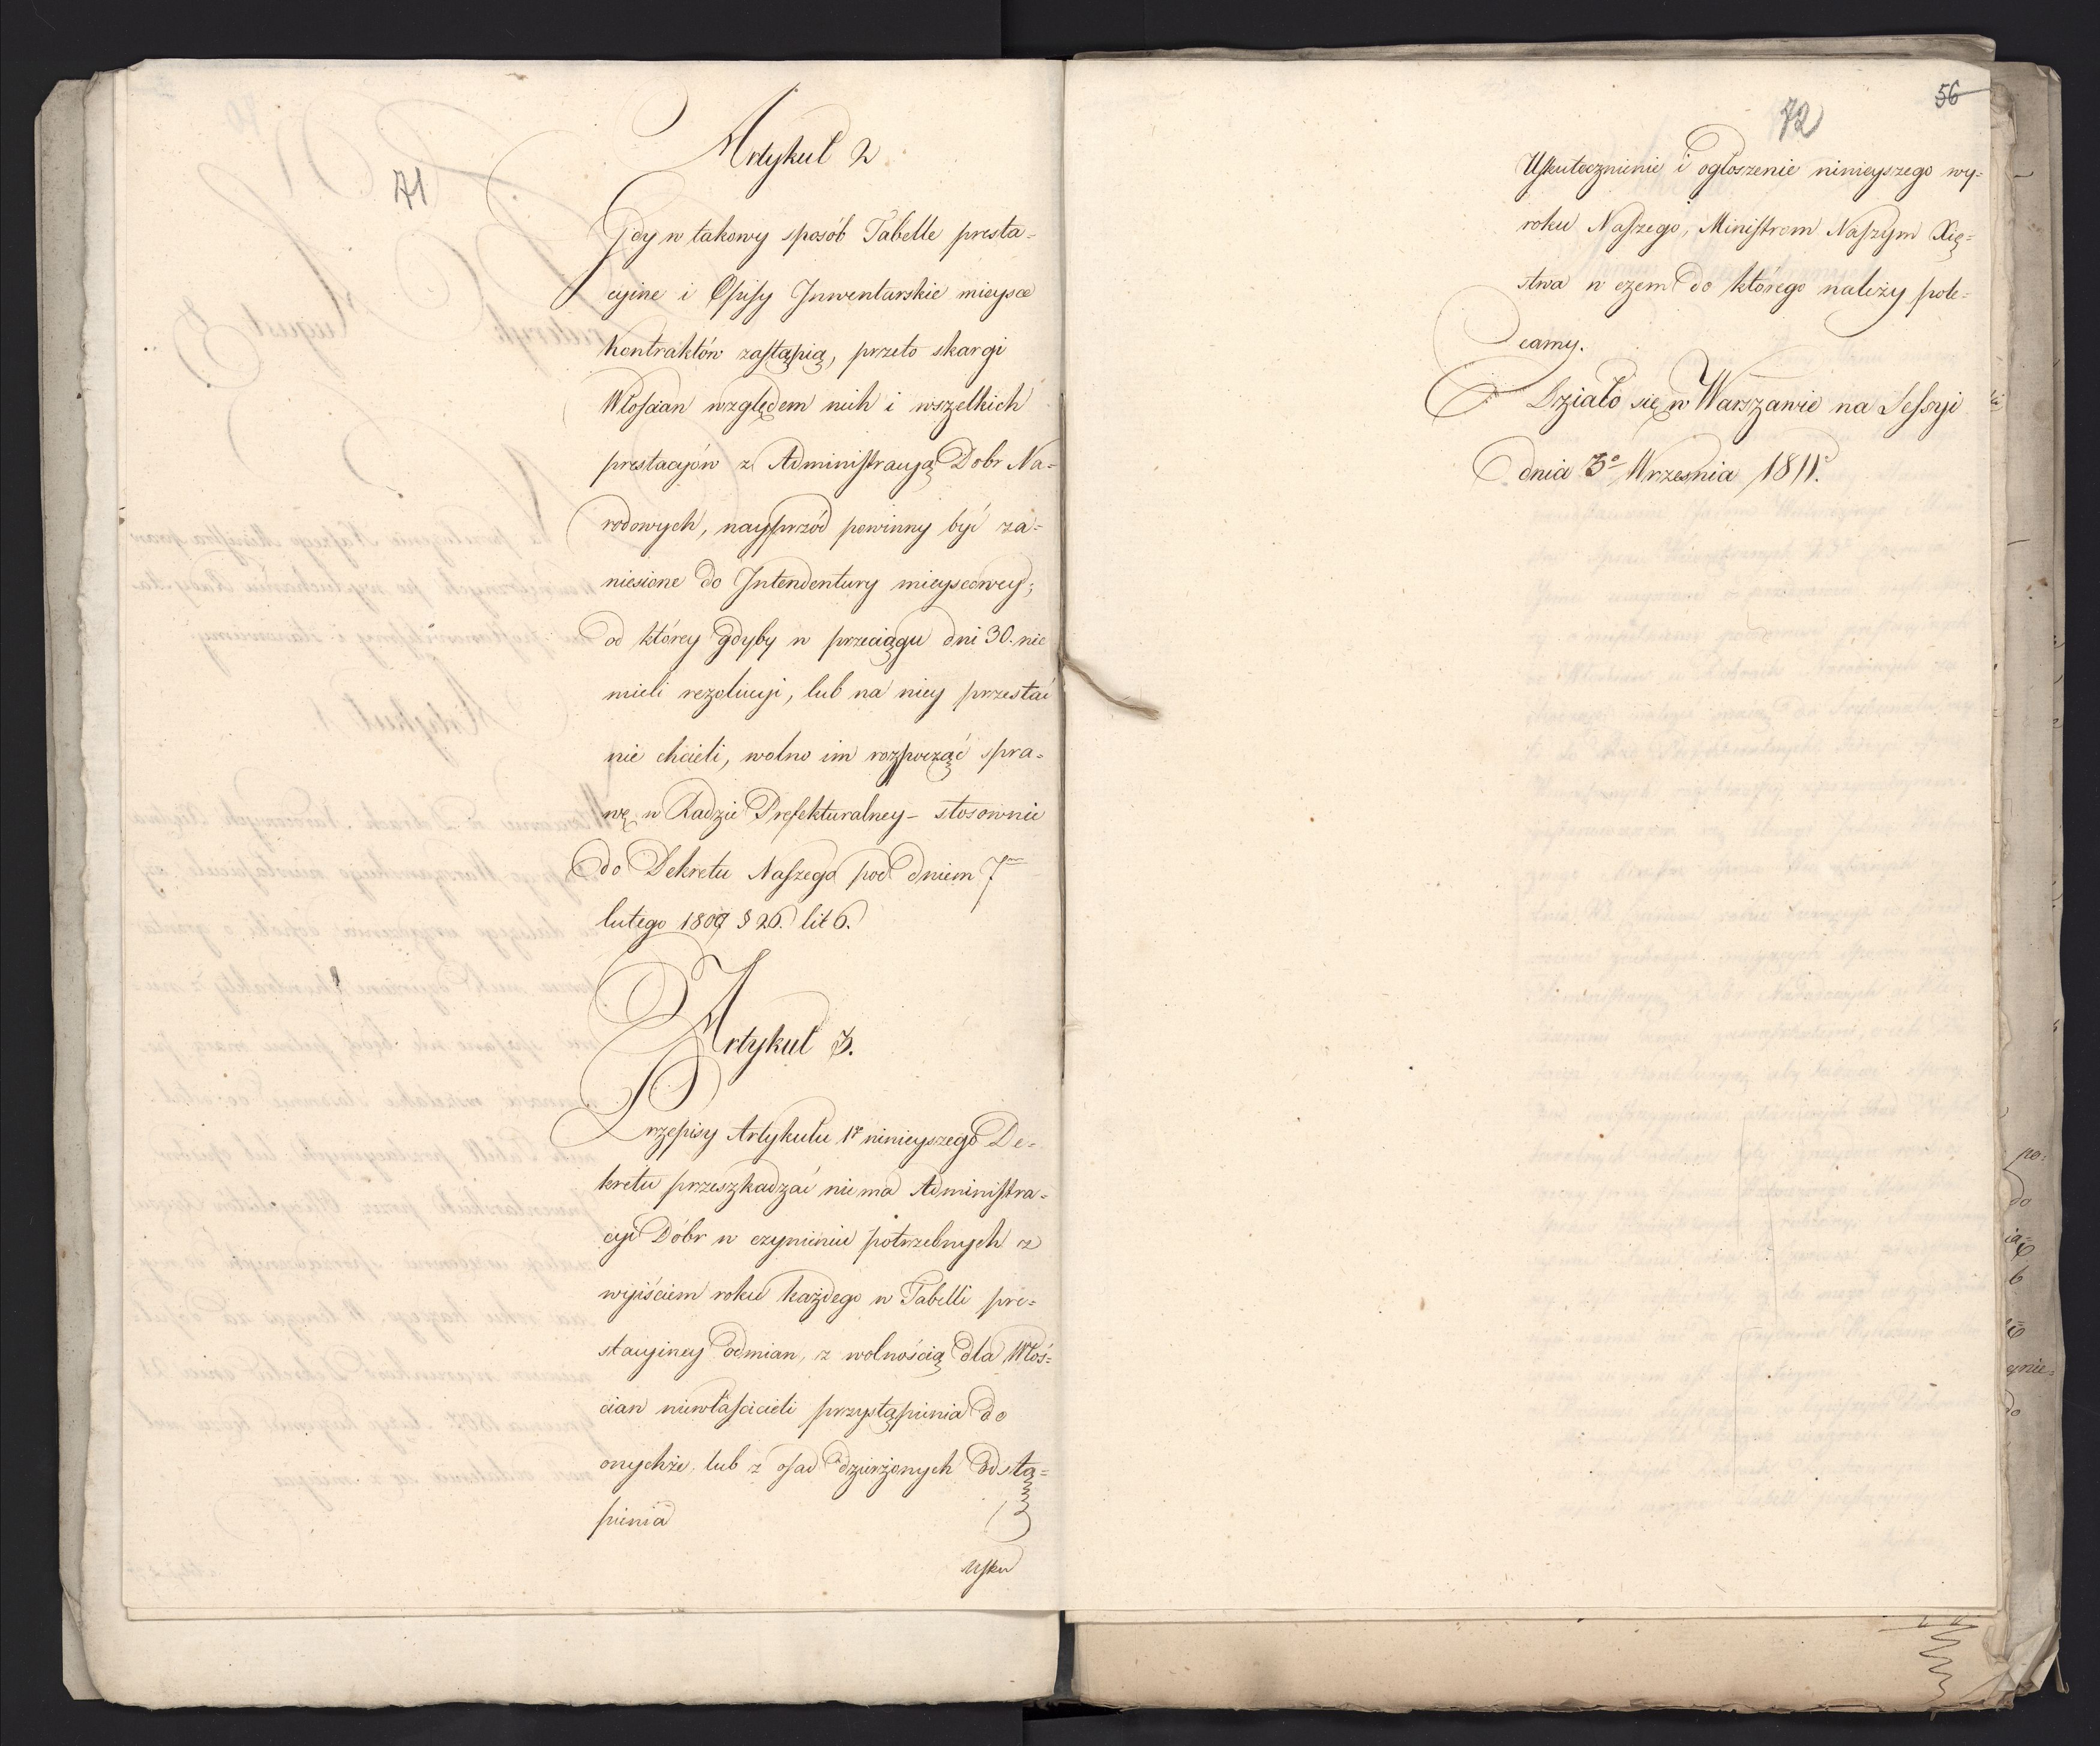 71
Artykuł 2
Gdy w takowy sposób Tabelle presta=
cyine i Opisy Jnwentarskie mieysce
kontraktów zastąpią, przeto skargi
Włościan względem nich i wszelkich
prestacyów z Administracyą Dobr Na=
rodowych, nayprzód powinny być za=
niesione do Jntendentury mieyscowey;
od którey gdyby w przeciągu dni 30. nie
mieli rezolucyi, lub na niey przestać
nie chcieli, wolno im rozpocząć spra=
wę w Radzie Prefekturalney – stosownie
do Dekretu Naszego pod dniem 7m
lutego 1809 § 26. lit 6.
Artykuł 3.
Przepisy Artykułu 1go ninieyszego De=
kretu przeszkadzać nie ma Administra=
cyi Dóbr w czynieniu potrzebnych z
wyiściem roku każdego w Tabelli pre=
stacyiney odmian, z wolnością dla Włoś=
cian niewłaścicieli przystąpienia do
onychże, lub z osad dzierżonych odstą=
pienia
Usku
56
72
Uskutecznienie i ogłoszenie ninieyszego wy=
roku Naszego, Ministrom Naszym Xię=
stwa w czem do którego należy pole=
camy.
Działo się w Warszawie na Sessyi
dnia 3o Września 1811.